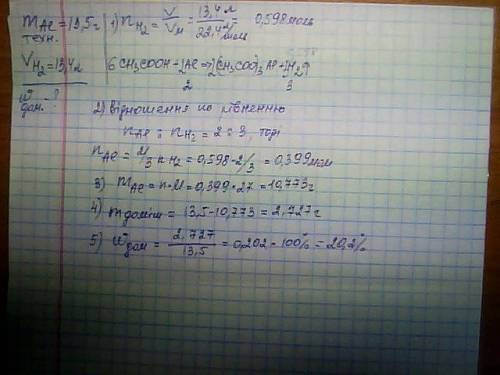 m Al = 13,5 г
техн.
V H2 = 13,4 л
W дом. - ?
1) n H2 = V / Vм = 13,4 л / 22,4 л/моль = 0,598 моль
0,598
6 CH3COOH + 2Al → 2(CH3COO)3Al + 3H2↑
2 3
2) відношення по рівненню
n Al : n H2 = 2 : 3, тоді
n Al = 2/3 n H2 = 0,598 · 2/3 = 0,399 моль
3) m Al = n · M = 0,399 · 27 = 10,773 г
4) m доміш = 13,5 - 10,773 = 2,727 г
5) W дом = 2,727 / 13,5 = 0,202 · 100% = 20,2%